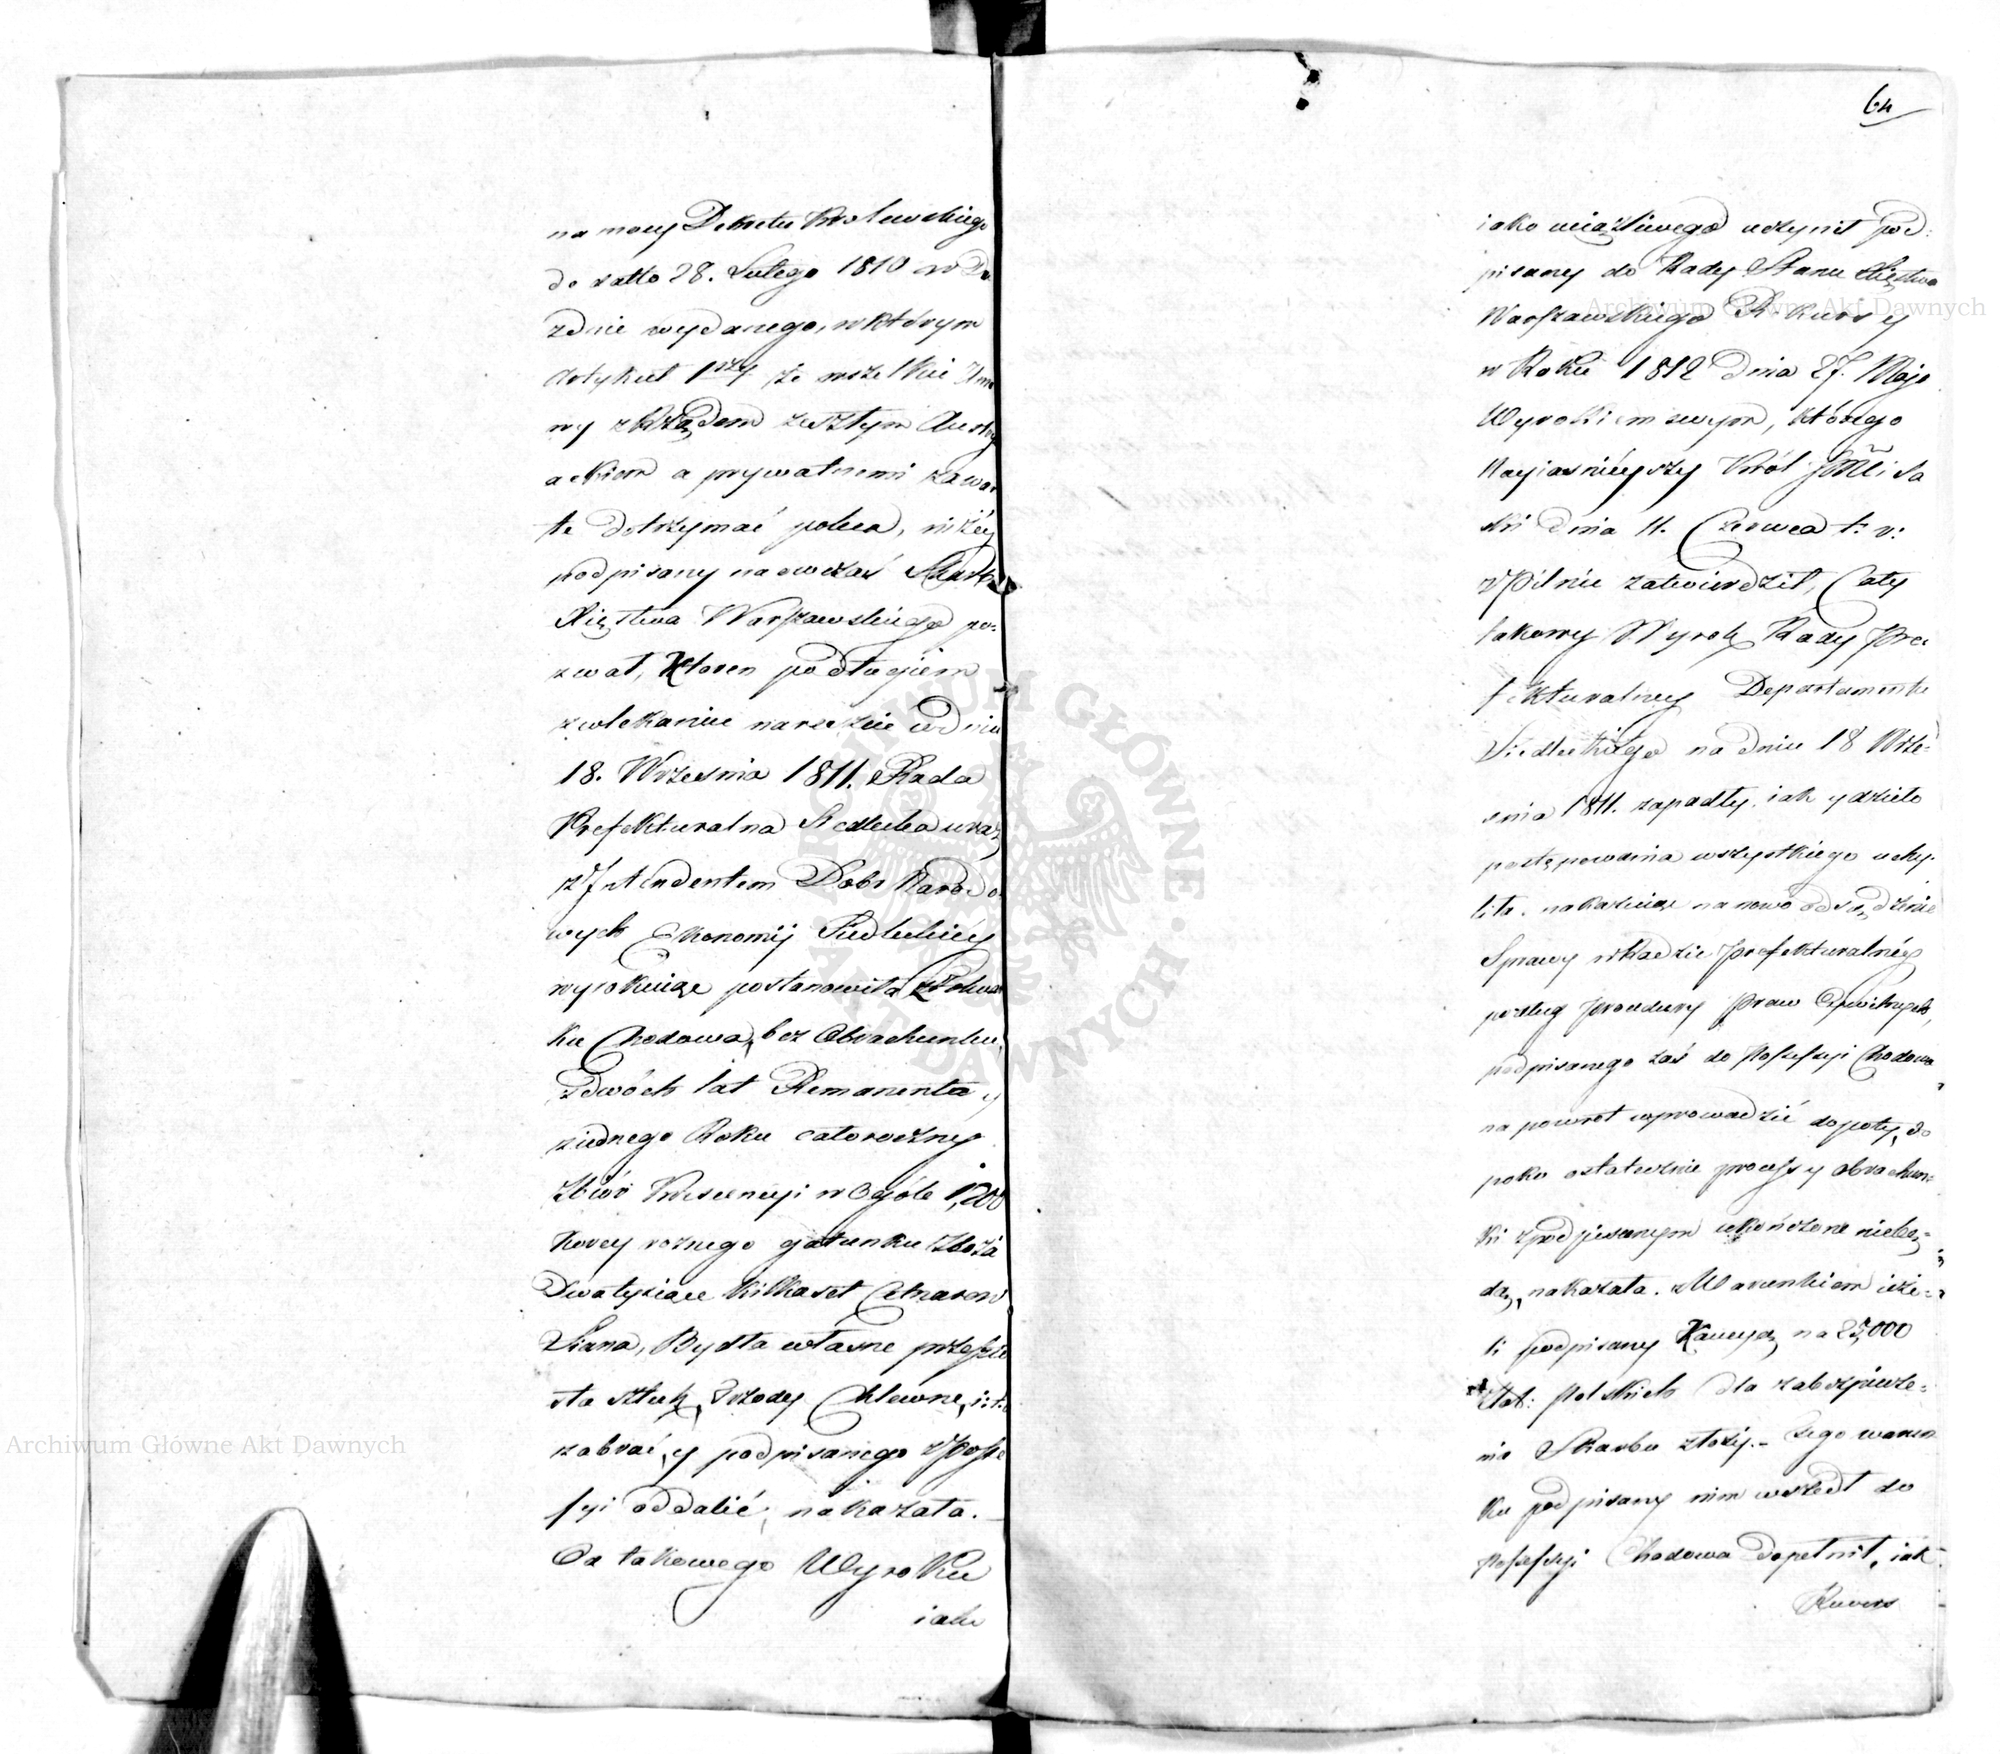 na mocy Dekretu Krolewskiego
de datto 28. Lutego 1810 w Dre
zdnie wydanego, w którym
Artykuł 1szy że wszelkie Umo
wy z Rządem zeszłym Austry
ackiem a prywatnemi zawar
te dotrzymać poleca, niżéy
podpisany na owczas Skarb
Xięstwa Warszawskiego po:
zwał, Ktoren po długiem
zwlekaniu nareszcie w dniu
18. Września 1811. Rada
Prefekturalna Siedlecka wraz
z Intendentem Dobr Narodo
wych Ekonomij Siedleckiéy
wyrokuiąc postanowiła z Folwar
ku Chodowa, bez Obrachunku,
z dwóch lat Remanenta y
z iednego Roku całoroczny
Zbiór Krescencyi w Ogóle 1,200
Korcy rożnego gatunku Zboża
Dwatysiące kilkaset Cetnarow
Siana, Bydła własne przeszło
sta sztuk, Trzody Chlewne, i: t:
zabrać, y podpisanego z Posse
ssyi oddalić, nakazała.
Od takowego Wyroku
iako
64
iako uciążliwego uczynił pod:
pisany do Rady Stanu Xięstwa
Warszawskiego Rekurs y
w Roku 1812 Dnia 27. Maja
Wyrokiem swym, którego
Nayiaśnieyszy Król Saski
Dnia 11. Czerwca t: r:
w Pilnie zatwierdził, Cały
takowy Wyrok Rady Pre
fekturalney Departamentu
Siedleckiego na dniu 18 Wrze:
śnia 1811. zapadły, iak y dzieło
postępowania wszystkiego uchy:
liła, nakazuiąc na nowo odsądzenie
Sprawy w Radzie Prefekturalnéy
podług procedury Praw Cywilnych,
podpisanego zaś do Possessyi Chodowa
na powrot wprowadzić dopoty, do
poko ostatecznie process y obrachun:
ki z podpisanym ukończone niebę:
dą, nakazała. z Warunkiem ieże:
li podpisany Kaucyą na 25,000
Złot: Polskich dla zabezpiecze:
nia Skarbu złoży.- Tego warun
ku podpisany nim wszedł do
Possessyi Chodowa dopełnił, iak
Rewers
Archiwum Główne Akt Dawnych
Archiwum Główne Akt Dawnych
ARCHIWUM GŁÓWNE AKT DAWNYCH